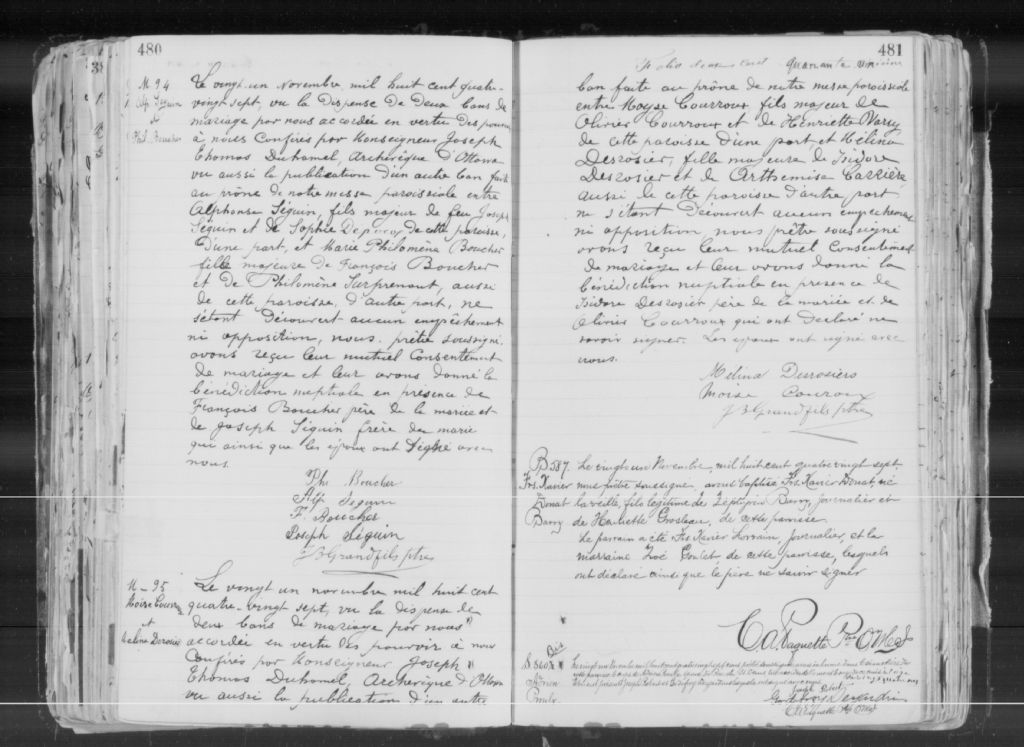 480
M. 94
Alp. Séguin
et
Phil. Boucher
Le vingt-un novembre mil huit cent quatre-
vingt sept, vu la dispense de deux bans de
mariage par nous accordée en vertu des pouvoirs
à nous confiés par Monseigneur Joseph
Thomas Duhamel, Archevêque d'Ottawa
vu aussi la publication d'un autre ban faite
au prône de notre messe paroissiale entre
Alphonse Séguin, fils majeur de feu Joseph
Séguin et de Sophie de cette paroisse,
d'une part, et Marie Philomène Boucher
fille majeure de François Boucher
et de Philomène Surprenant, aussi
de cette paroisse, d'autre part, ne
s'étant découvert aucun empêchement
ni opposition, nous, prêtre soussigné,
avons reçu leur mutuel consentement
de mariage et leur avons donné la
bénédiction nuptiale en présence de
François Boucher père de la mariée et
de Joseph Séguin frère du marié
qui ainsi que les époux ont signé avec
nous.
Phi Boucher
Alp. Seguin
F. Boucher
Joseph Séguin
J B Grandfils ptre
M - 95
Moïse Courroux
et
Mélina Derosier
Le vingt un novembre mil huit cent
quatre-vingt sept, vu la dispense de
deux bans de mariage par nous
accordée en vertu des pouvoir à nous
confiés par Monseigneur Joseph
Thomas Duhamel, Archevêque d'Ottawa
vu aussi la publication d'un autre
481
Folio deux cent quarante un
ban faite au prône de notre messe paroissiale
entre Moyse Courroux fils majeur de
Olivier Courroux et de Henriette
de cette paroisse d'une part et Mélina
Desrosier, fille majeure de Isidore
Desrosier et de Arthemise Carrière
aussi de cette paroisse d'autre part
ne s'étant découvert aucun empêchement
ni opposition, nous, prêtre soussigné
avons reçu leur mutuel consentement
de mariage et leur avons donné la
bénédiction nuptiale en présence de
Isidore Desrosier père de la mariée et de
Olivier Courroux qui ont déclaré ne
savoir signer. Les époux ont signé avec
nous.
Mélina Desrosiers
Moise Couroux
J B Grandfils ptre
B 587.
Frs. Xavier
Donat
Barry
Le vingt un Novembre, mil huit cent quatre vingt sept
nous prêtre soussigné avons baptisé Frs. Xavier Donat, né
la veille, fils légitime de Barry, journalier et
de Henriette Grosleau, de cette paroisse
Le parrain a été Frs Xavier Lorrain, journalier, et la
marraine Zoé Goulet de cette paroisse, lesquels
ont déclaré ainsi que le père ne savoir signer
C. A. Paquette Ptre O.M.I.
S 360
Bis